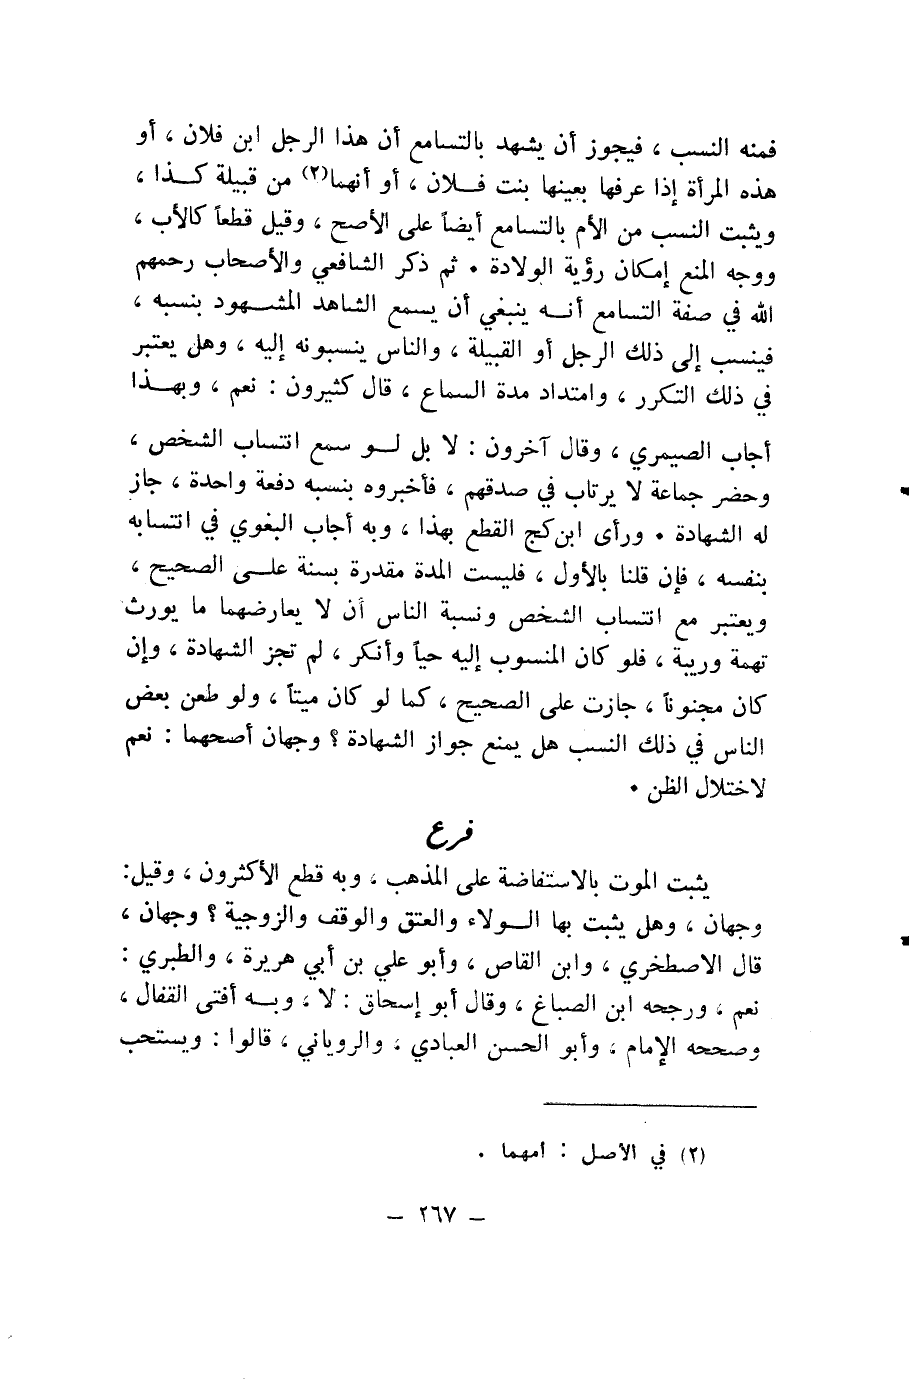 فمنه النسب ، فيجوز أن يشهد بالتسامع أن هذا الرجل ابن فلان ، أو
هذه المرأة إذا عرفها بعينها بنت فلان ، أو أنهما(٢) من قبيلة كذا ،
ويثبت النسب من الأم بالتسامع أيضاً على الأصح ، وقيل قطعاً كالأب ،
ووجه المنع إمكان رؤية الولادة . ثم ذكر الشافعي والأصحاب رحمهم
الله في صفة التسامع أنه ينبغي أن يسمع الشاهد المشهود بنسبه ،
فينسب إلى ذلك الرجل أو القبيلة ، والناس ينسبونه إليه ، وهل يعتبر
في ذلك التكرر ، وامتداد مدة السماع ، قال كثيرون : نعم ، وبهذا
أجاب الصيمري ، وقال آخرون : لا بل لو سمع انتساب الشخص ،
وحضر جماعة لا يرتاب في صدقهم ، فأخبروه بنسبه دفعة واحدة ، جاز
له الشهادة . ورأى ابن كج القطع بهذا ، وبه أجاب البغوي في انتسابه
بنفسه ، فإن قلنا بالأول ، فليست المدة مقدرة بسنة على الصحيح ،
ويعتبر مع انتساب الشخص ونسبة الناس أن لا يعارضهما ما يورث
تهمة وريبة ، فلو كان المنسوب إليه حياً وأنكر ، لم تجز الشهادة ، وإن
كان مجنوناً ، جازت على الصحيح ، كما لو كان ميتاً ، ولو طعن بعض
الناس في ذلك النسب هل يمنع جواز الشهادة ؟ وجهان أصحهما : نعم
لاختلال الظن .
فرع
يثبت الموت بالاستفاضة على المذهب ، وبه قطع الأكثرون ، وقيل:
وجهان ، وهل يثبت بها الولاء والعتق والوقف والزوجية ؟ وجهان ،
قال الاصطخري ، وابن القاص ، وأبو علي بن أبي هريرة ، والطبري :
نعم ، ورجحه ابن الصباغ ، وقال أبو إسحاق : لا ، وبه أفتى القفال ،
وصححه الإمام ، وأبو الحسن العبادي ، والروياني ، قالوا : ويستحب
(٢) في الأصل : أمهما .
– ٢٦٧ –